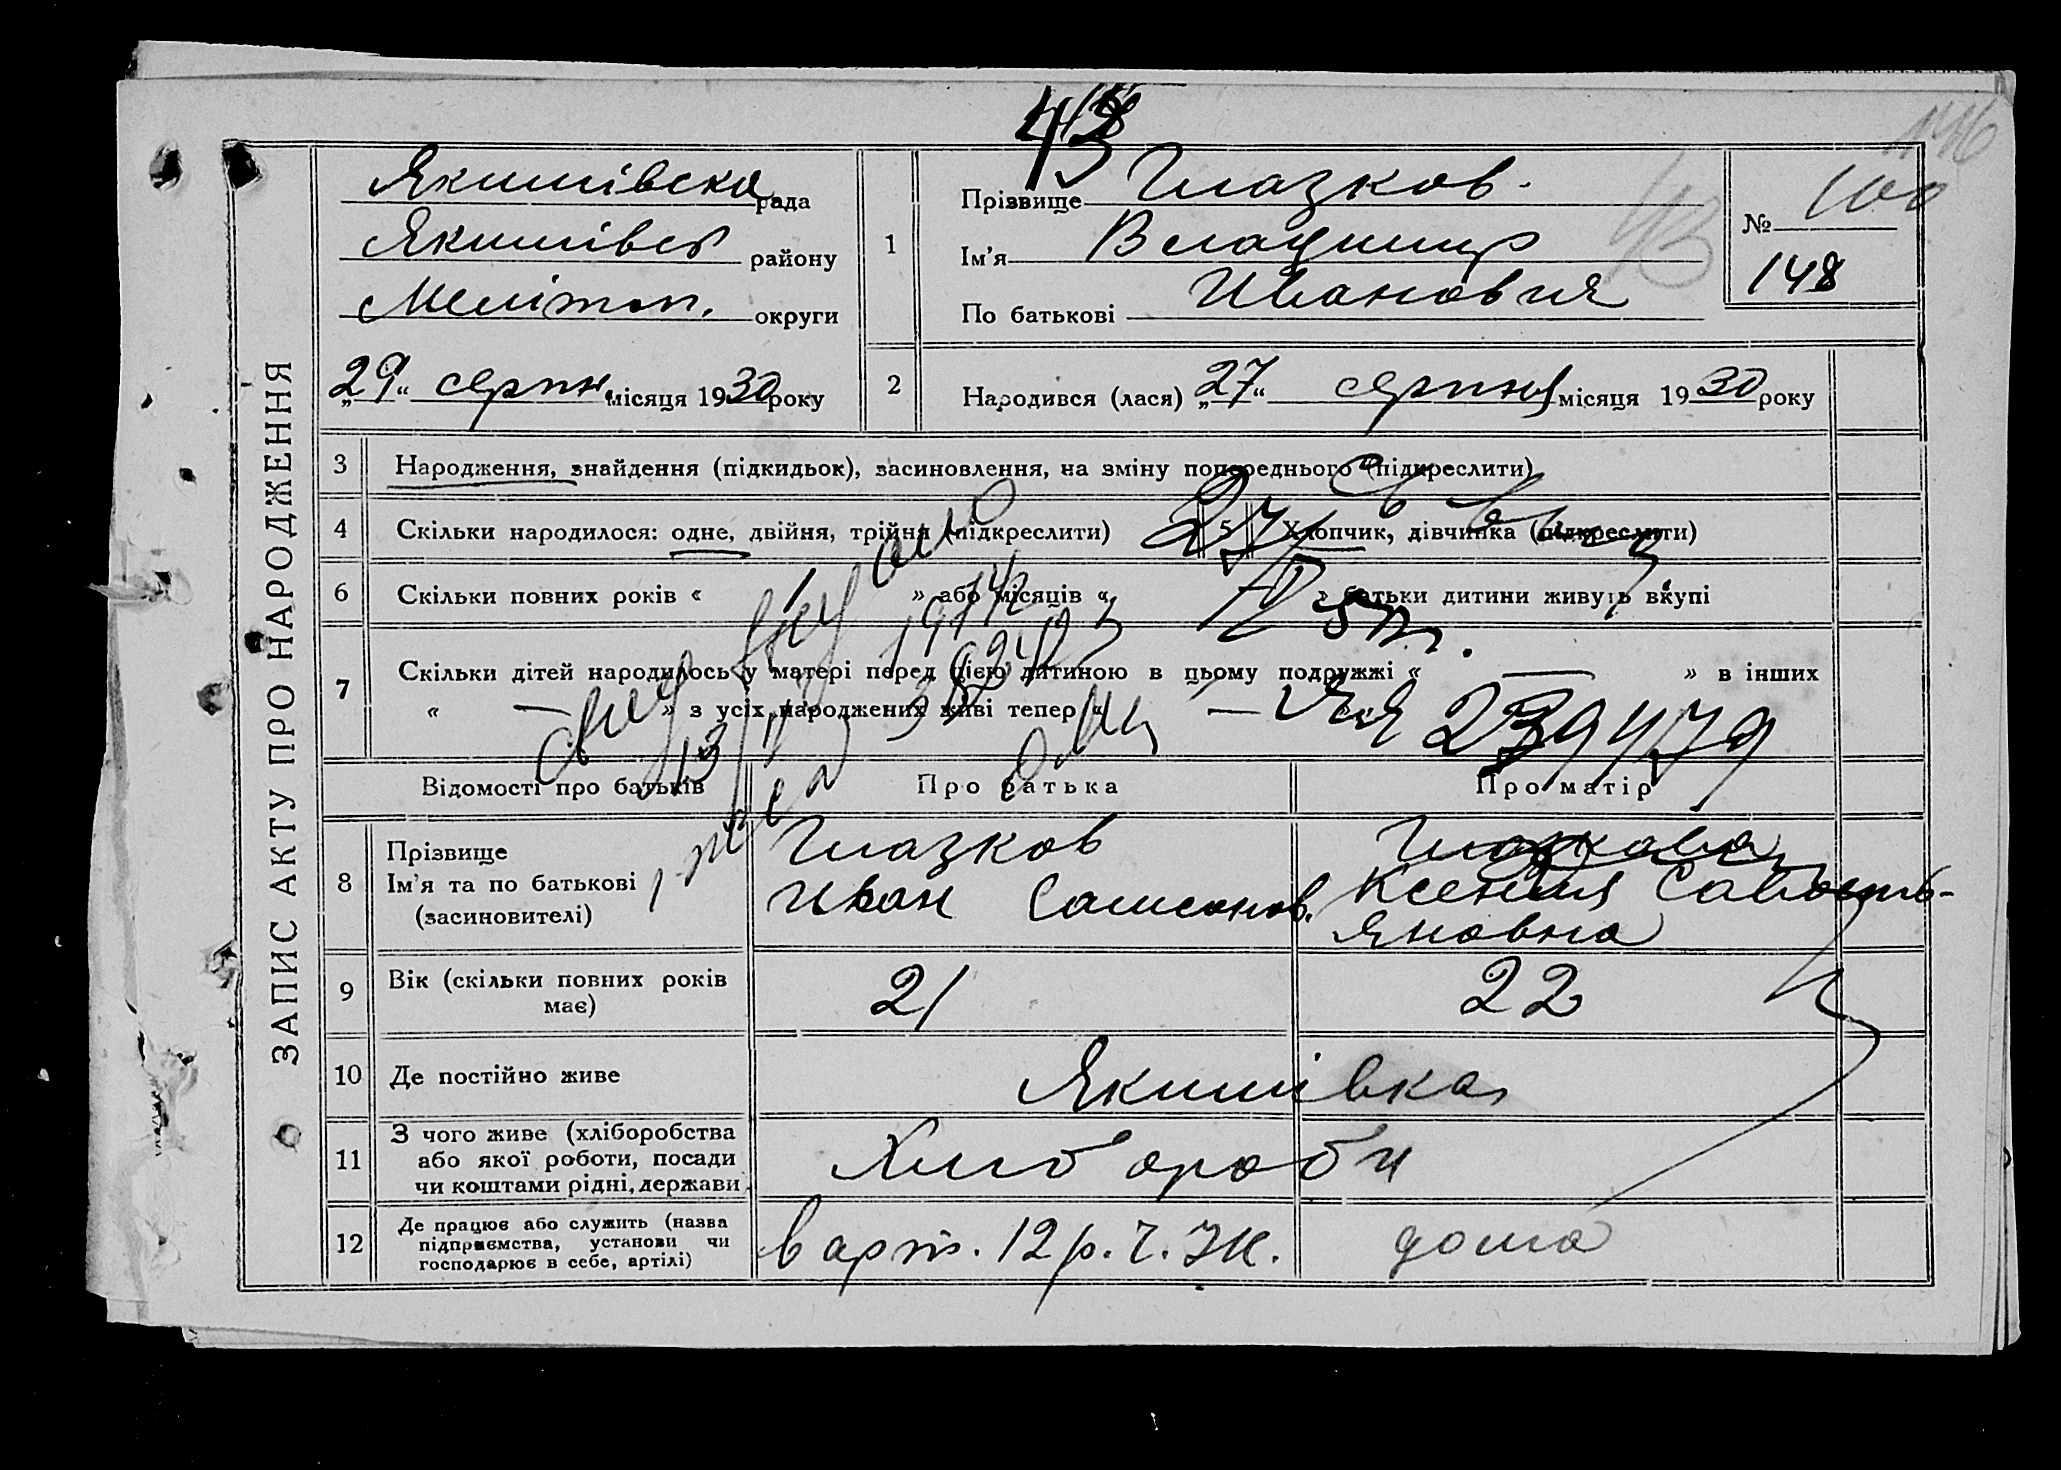 43
146
ЗАПИС АКТУ ПРО НАРОДЖЕННЯ
Якимівска рада
Якимівсь району
Меліт. округи
„29“ серпн. місяця 1930 року
1
Прізвище Глазков.
Ім'я Владимир
По батькові Иванович
№ 100
148
43
2
Народився (лася) „27“ серпня місяця 1930 року
3 Народження, знайдення (підкидьок), засиновлення, на зміну попереднього (підкреслити)
4 Скільки народилося: одне, двійня, трійня (підкреслити) 5 Хлопчик, дівчинка (підкреслити)
6 Скільки повних років « 1 » або місяців « » батьки дитини живуть вкупі
7 Скільки дітей народилось у матері перед цією дитиною в цьому подружжі « — » в інших
« — » з усіх народжених живі тепер « —
239479
Відомості про батьків Про батька Про матір
8 Прізвище
Ім'я та по батькові
(засиновителі)
Глазков
Иван Самсонов.
Глазкова
Ксения Савость-
яновна
9 Вік (скільки повних років
має)
21 22
10 Де постійно живе Якимівка
11 З чого живе (хліборобства
або якої роботи, посади
чи коштами рідні, держави
Хлібороби
12 Де працює або служить (назва
підприємства, установи чи
господарює в себе, артілі)
в арт. 12 р. Ч. дома